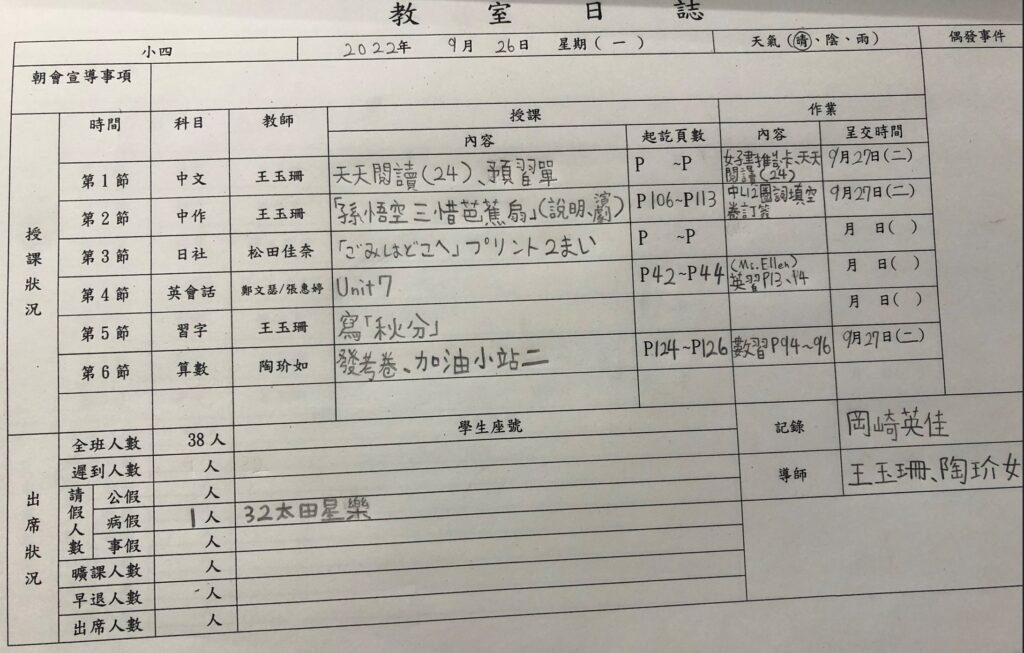 教室日誌
小四 2022年 9月 26日 星期(一) 天氣(晴、陰、雨) 偶發事件
朝會宣導事項
授課狀況 時間 科目 教師 授課 作業
內容 起訖頁數 內容 呈交時間
第1節 中文 王玉珊 天天閱讀(24)、預習單 P ~P 好書推薦卡、天天閱讀(24) 9月27日(二)
第2節 中作 王玉珊 「孫悟空三借芭蕉扇」(說明、演劇) P106~P113 中L12圈詞填空卷訂簽 9月27日(二)
第3節 日社 松田佳奈 「ごみはどこへ」プリント2まい P ~P 月 日( )
第4節 英會話 鄭文瑟/張惠婷 Unit 7 P42~P44 (Ms.Ellen)英習P13、14 月 日( )
第5節 習字 王玉珊 寫「秋分」 月 日( )
第6節 算數 陶玠如 發考卷、加油小站二 P124~P126 數習P94~96 9月27日(二)
出席狀況 全班人數 38人 學生座號 記錄 岡崎英佳
遲到人數 人 導師 王玉珊、陶玠女
請假人數 公假 人
病假 1人 32太田星樂
事假 人
曠課人數 人
早退人數 人
出席人數 人